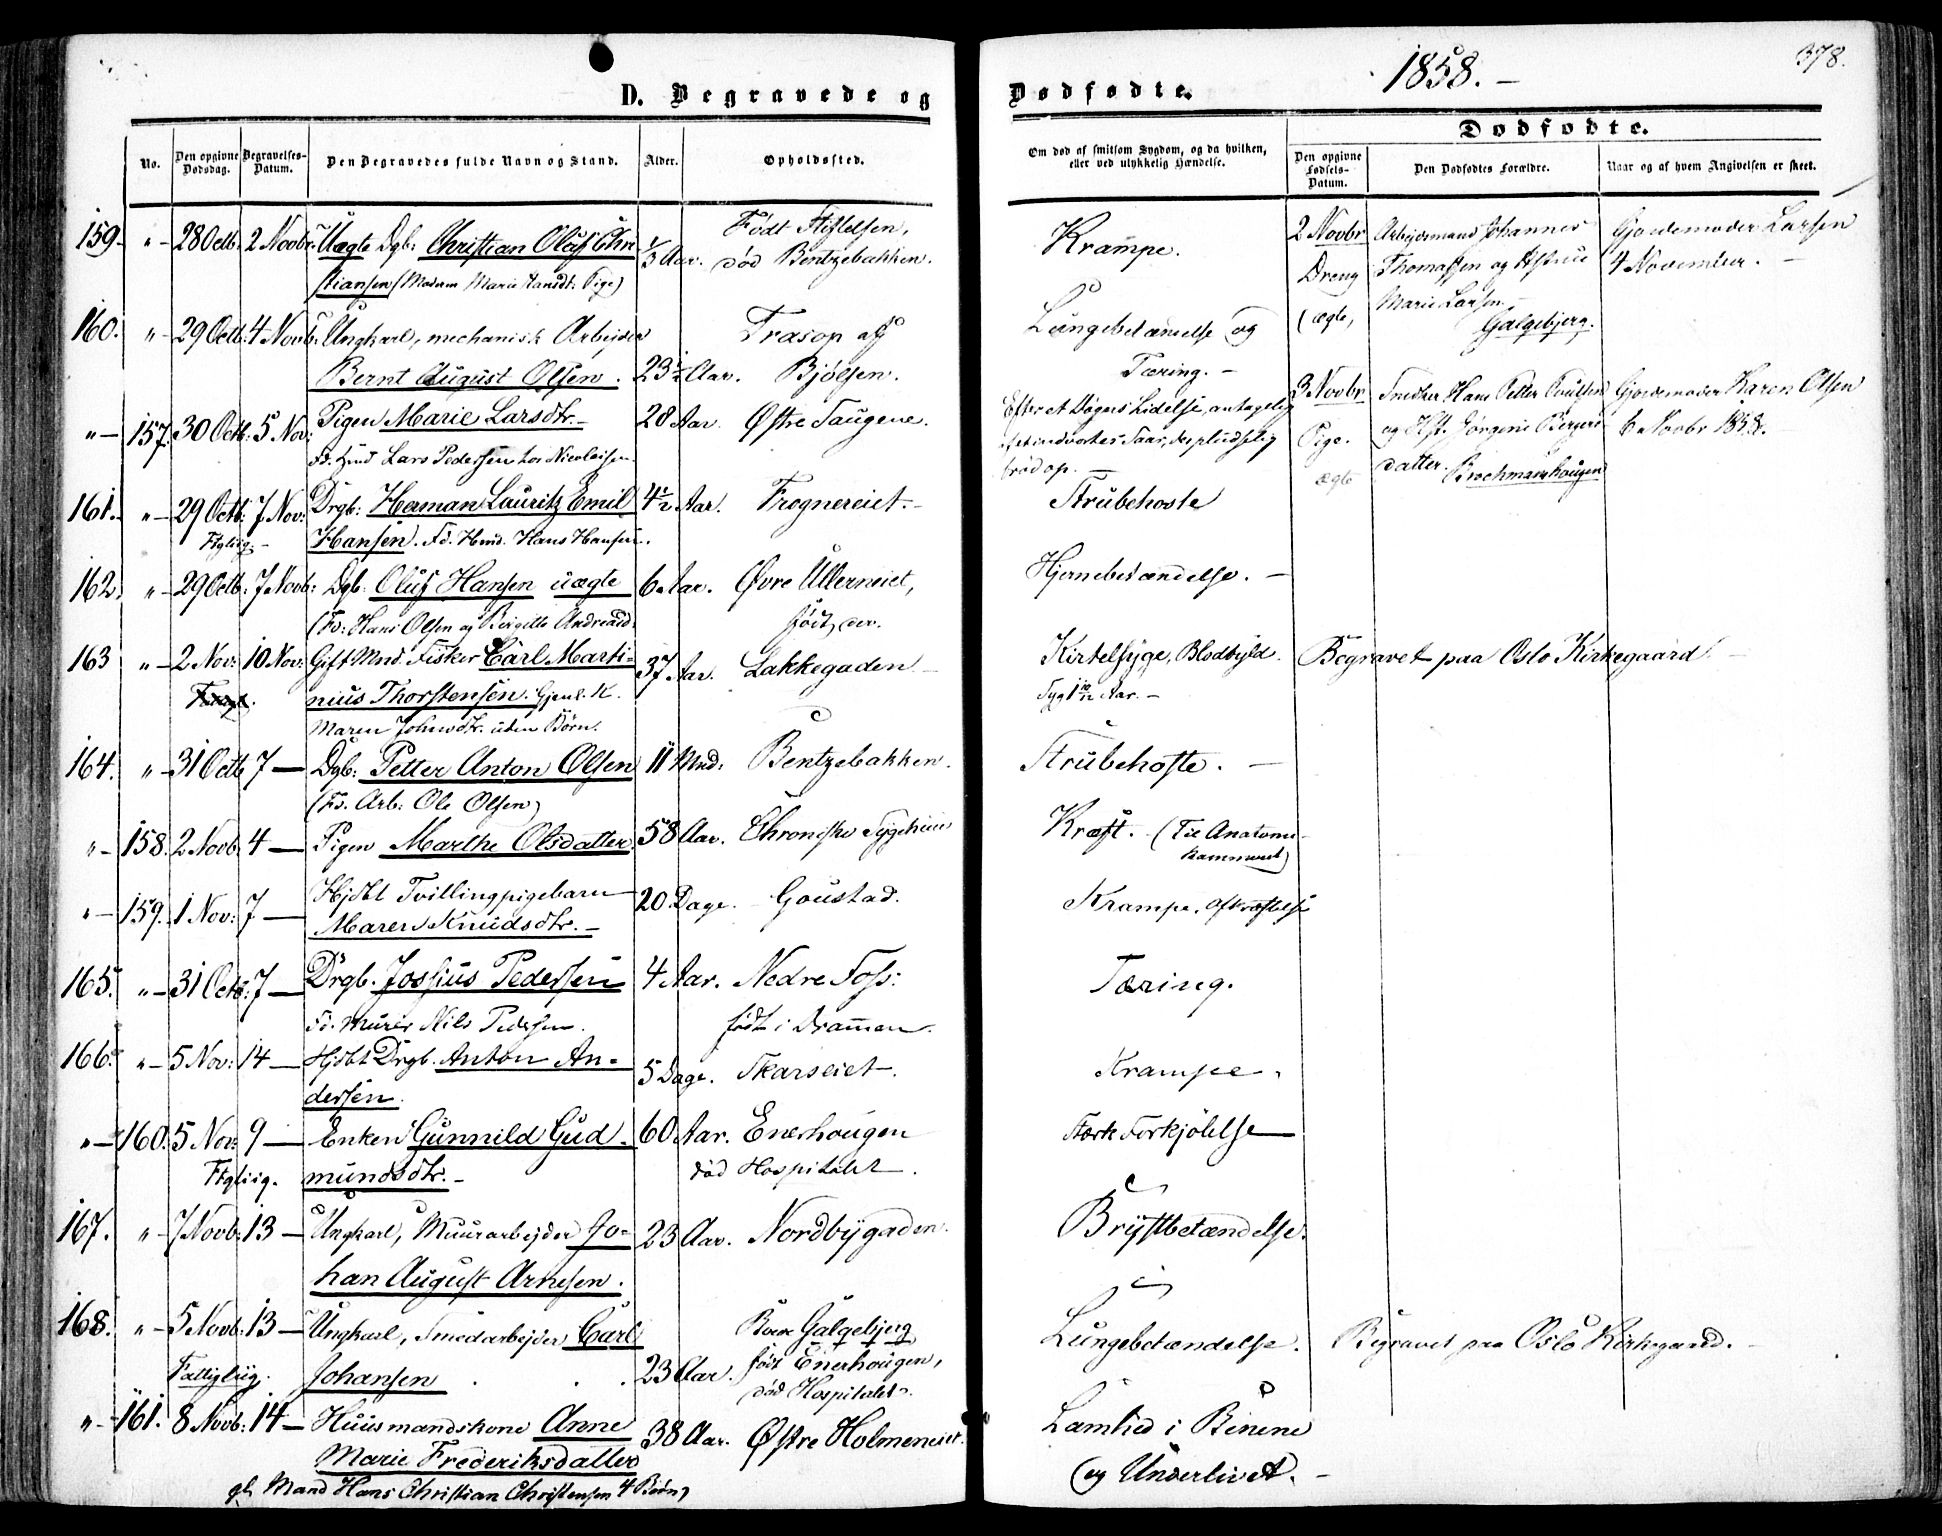 1858.
378.
D. Begravede og Dødfødte.
Dødfødte.
No.
Den opgivne Dødsdag.
Begravelses-Datum.
Den Begravedes fulde Navn og Stand.
Alder.
Opholdssted.
Om død af smitsom Sygdom, og da hvilken, eller ved ulykkelig Hændelse.
Den opgivne Fødsels-Datum.
Den Dødfødtes Forældre.
Naar og af hvem Angivelsen er skeet.
159. "- 28 Octb. 2 Novbr. Uægte Dgb: Christian Oluf Chri
stiansen (Moderen Marie Pige)
1/3 Aar.
Født Stiftelsen,
død Bentzebakken.
Krampe.
2 Novbr
Dreng
(ægte,
Arbejdsmand Johannes
Thomassen og Hstrue
Marie Larsen
Galgebjerg.
Gjordemoder Larsen
4 November.
160. "- 29 Octb: 4 Novb. Ungkarl, mechanisk Arbejder
Bernt August Olsen.
23 1/2 Aar.
Trasop af
Bjølsen.
Lungebetændelse og
Tæring. -
"- 157. 30 Octb: 5 Nov: Pigen Marie Larsdtr.
Fd. Hmd Lars Pedersen hos Nicolaisen
28 Aar.
Østre Taugene.
Efter et Døgns Lidelse, antagelig
af et indvortes Saar, der pludselig
brød op. -
3 Novbr
Pige.
ægte
Snedker Hans Petter Poulsen
og Hst. Jørgine Berger
datter. Brochmannhougen
Gjordemoder Karen Olsen
6 Novbr 1858.
161. "- 29 Octb: 7 Nov: Drgb: Herman Lauritz Emil
Hansen. Fd. Hmd. Hans Hansen.
Ftglig. -
4 1/2 Aar.
Frognereiet. -
Strubehoste
162. "- 29 Octb: 7 Novb: Dgb: Oluf Hansen uægte
(Fd: Hans Olsen og Birgitte Andreasd.
6 Aar.
Øvre Ullerneiet,
født der.
Hjernebetændelse. -
163 "- 2 Nov: 10 Nov: Gift Mnd. Fisker Carl Marti-
nius Thorstensen. Gjenl. K.
Maren Johnsdtr. uden Børn.
37 Aar.
Lakkegaden -
Kirtelsyge, Blodbyld.
Syg 1 10/12 Aar. -
Begravet paa Oslo Kirkegaard. -
164. "- 31 Octb 7 - Dgb: Petter Anton Olsen
(Fd. Arb: Ole Olsen)
11 Mnd:
Bentzebakken.
Strubehoste. -
"- 158. 2 Novb: 4 - Pigen Marthe Olsdatter.
58 Aar.
Chroniske Sygehuus
Kræft. (Til Anatomi-
kammeret)
"- 159. 1 Nov: 7 - Hjdbt Tvillingpigebarn
Maren Knudsdtr. -
20 Dage. -
Goustad.
Krampe. Afkræftelse
165. "- 31 Octb: 7 - Drgb. Josfius Pedersen
Fd. Murer Nils Pedersen.
4 Aar.
Nedre Foss:
født i Drammen.
Tæring.
166. "- 5 Nov: 14 - Hjdbt Drgb. Anton An-
dersen.
5 Dage.
Skarseiet -.
Krampe.
"- 160. 5 Nov: 9 - Enken Gunnild Gud-
mundsdtr. -
Ftglig.
60 Aar.
Enerhougen
død Hospitalet.
Stærk Forkjølelse
167. "- 7 Novb: 13 - Ungkarl, Muurarbejder Jo-
han August Arnesen.
23 Aar.
Nordbygaden.
Brystbetændelse.
168. "- 5 Novb: 13 - Ungkarl, Smedarbejder Carl
Johansen
Fattiglig.
23 Aar.
Boede Galgebjerg
født Enerhougen,
død Hospitalet.
Lungebetændelse.
Begravet paa Oslo Kirkegaard. -
"- 161. 8 Novb: 14 - Huusmandskone Anne
Marie Frederiksdatter
gl. Mand Hans Christian Christensen 4 Børn)
38 Aar.
Østre Holmeneiet.
Lamhed i Benene
og Underlivet. -